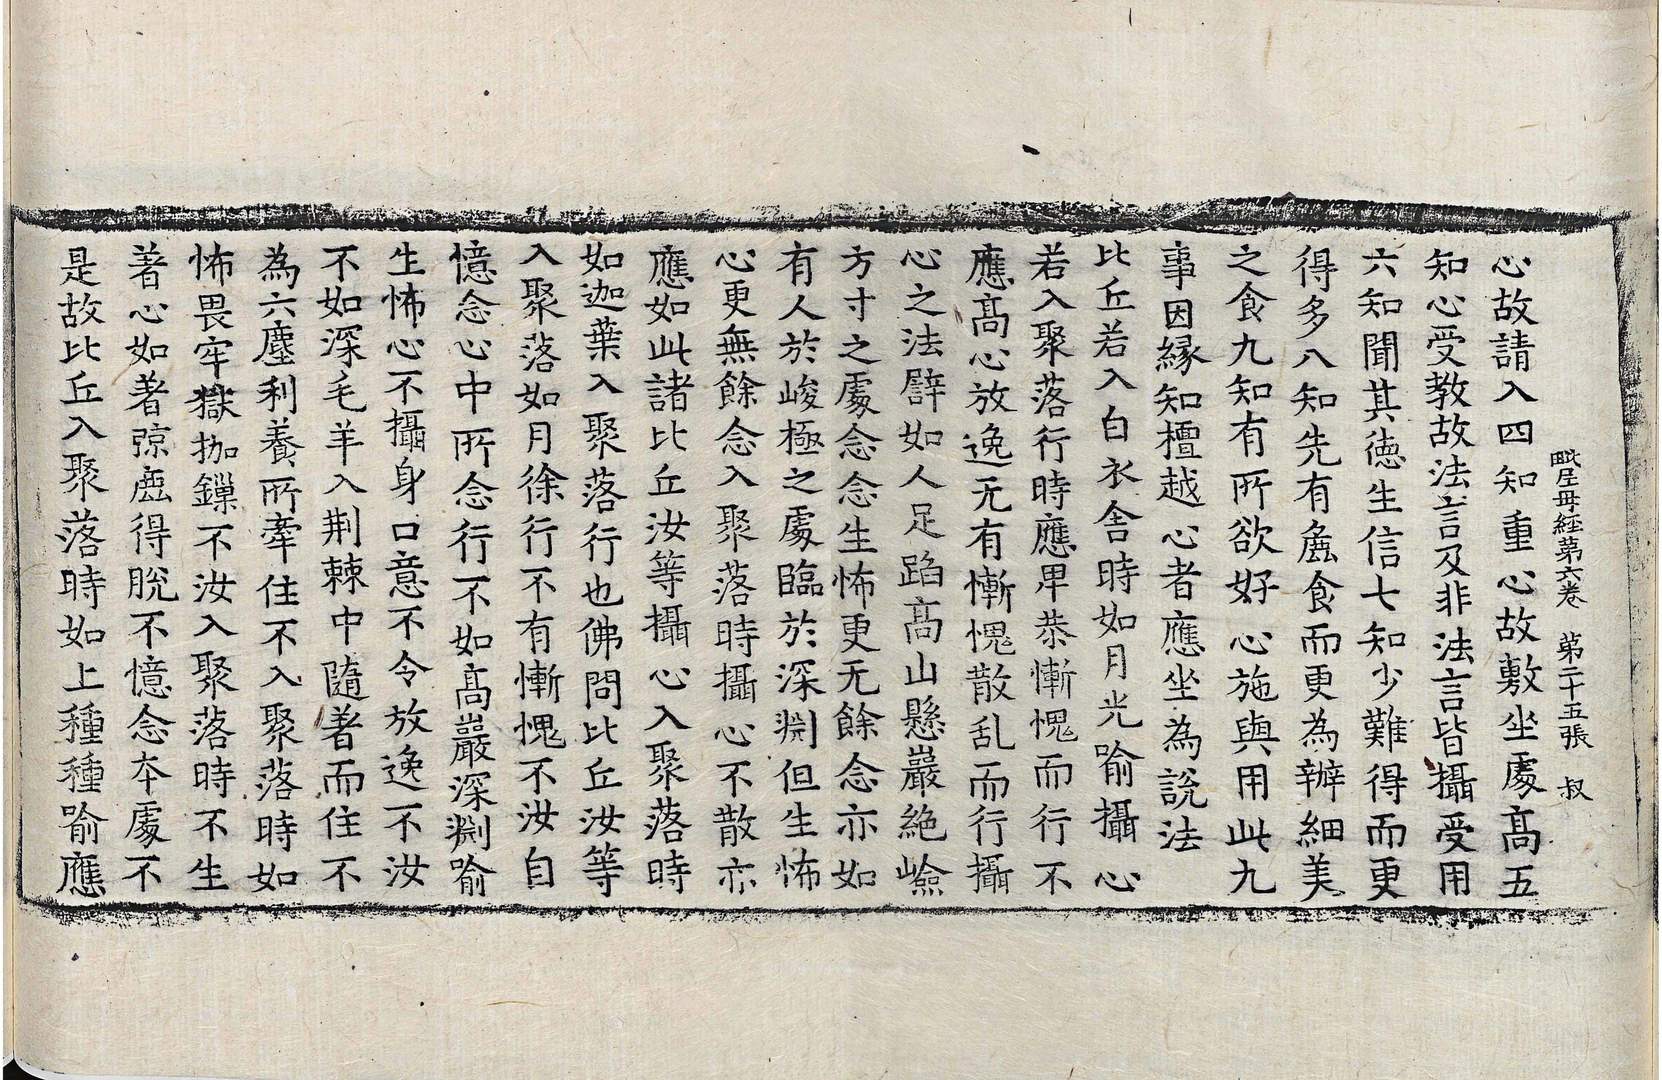 毗尼母經第六卷　第二十五張　叔
心故請入四知重心故敷坐處髙五
知心受教故法言及非法言皆攝受用
六知聞其徳生信七知少難得而更
得多八知先有麁食而更為辦細美
之食九知有所欲好心施與用此九
事因縁知檀越心者應坐為説法
比丘若入白衣舍時如月光喻攝心
若入聚落行時應卑恭慚愧而行不
應髙心放逸无有慚愧散乱而行攝
心之法譬如人足蹈髙山懸巖絶嶮
方寸之處念念生怖更无餘念亦如
有人於峻極之處臨於深渕但生怖
心更無餘念入聚落時攝心不散亦
應如此諸比丘汝等攝心入聚落時
如迦葉入聚落行也佛問比丘汝等
入聚落如月徐行不有慚愧不汝自
憶念心中所念行不如髙巖深渕喻
生怖心不攝身口意不令放逸不汝
不如深毛羊入荆棘中隨著而住不
為六塵利養所牽住不入聚落時如
怖畏牢獄枷鏁不汝入聚落時不生
著心如著弶麁得脫不憶念夲處不
是故比丘入聚落時如上種種喻應